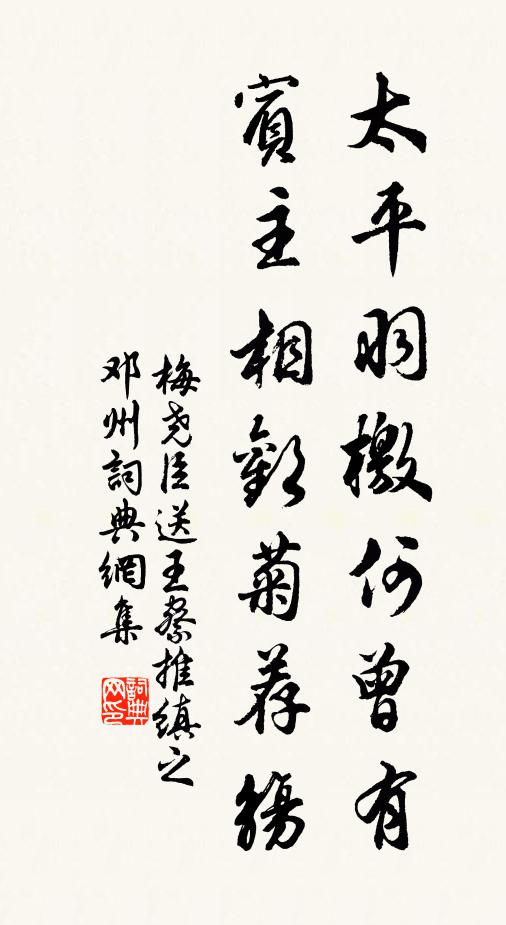 太平羽檄何曾有
賓主相歡菊荐觴
梅堯臣送王察推縝之
邓州詞典網集
詞典网印